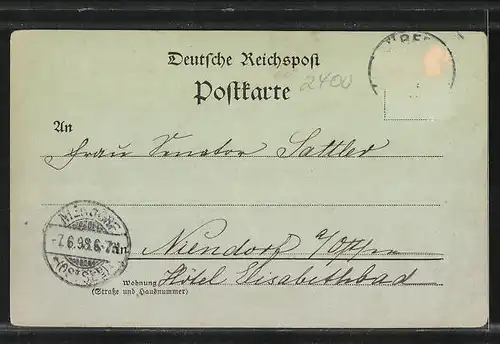 Deutsche Reichspost
Postkarte
2400
An
Frau Senator Sattler
NIENDORF
7.6.98.6-7N
(OSTSEE)
in
Niendorf a/Ostsee
Hôtel Elisabethbad
Wohnung
(Straße und Hausnummer)